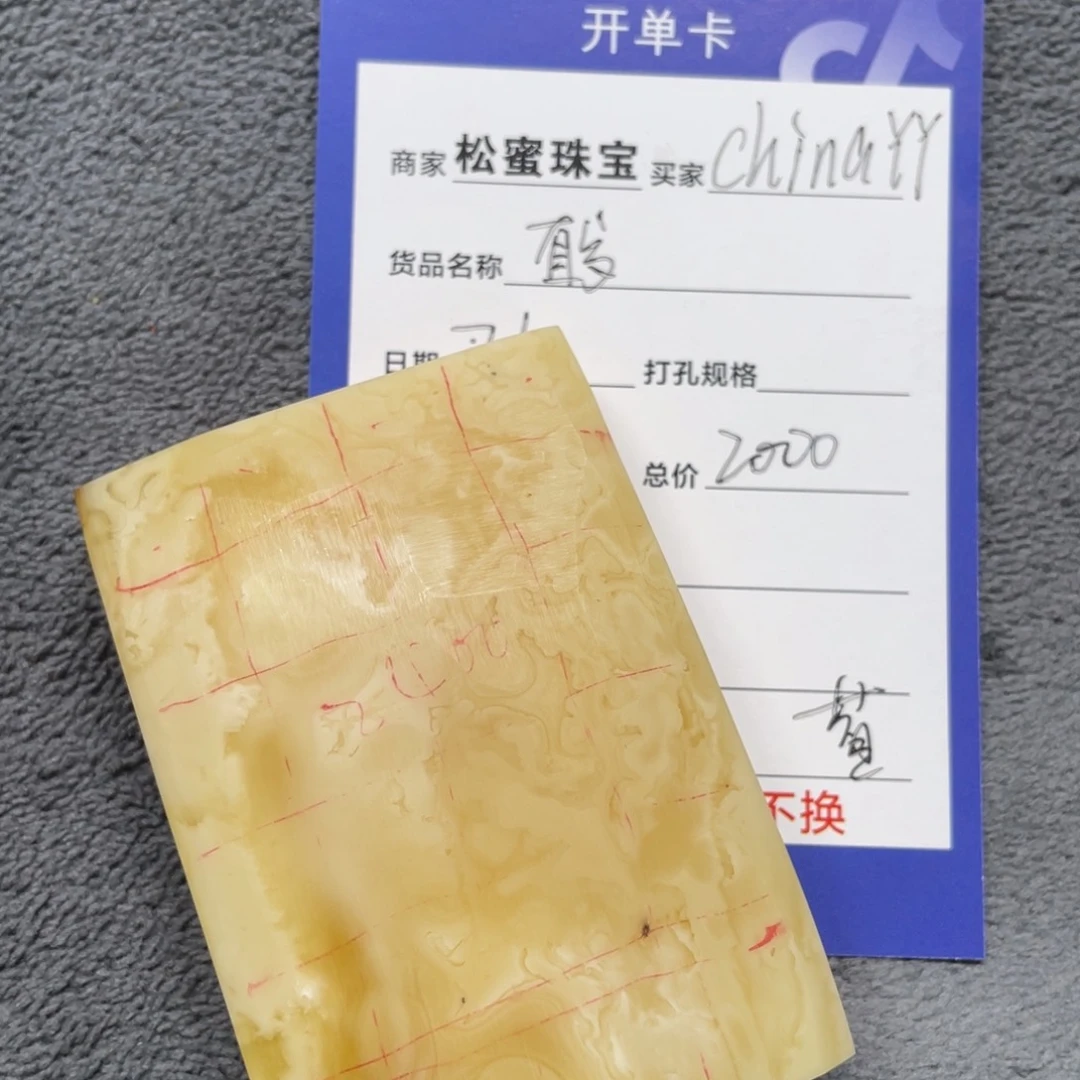 开单卡
商家 松蜜珠宝 买家 chinaYY
货品名称
日期 打孔规格
总价 2000
不换